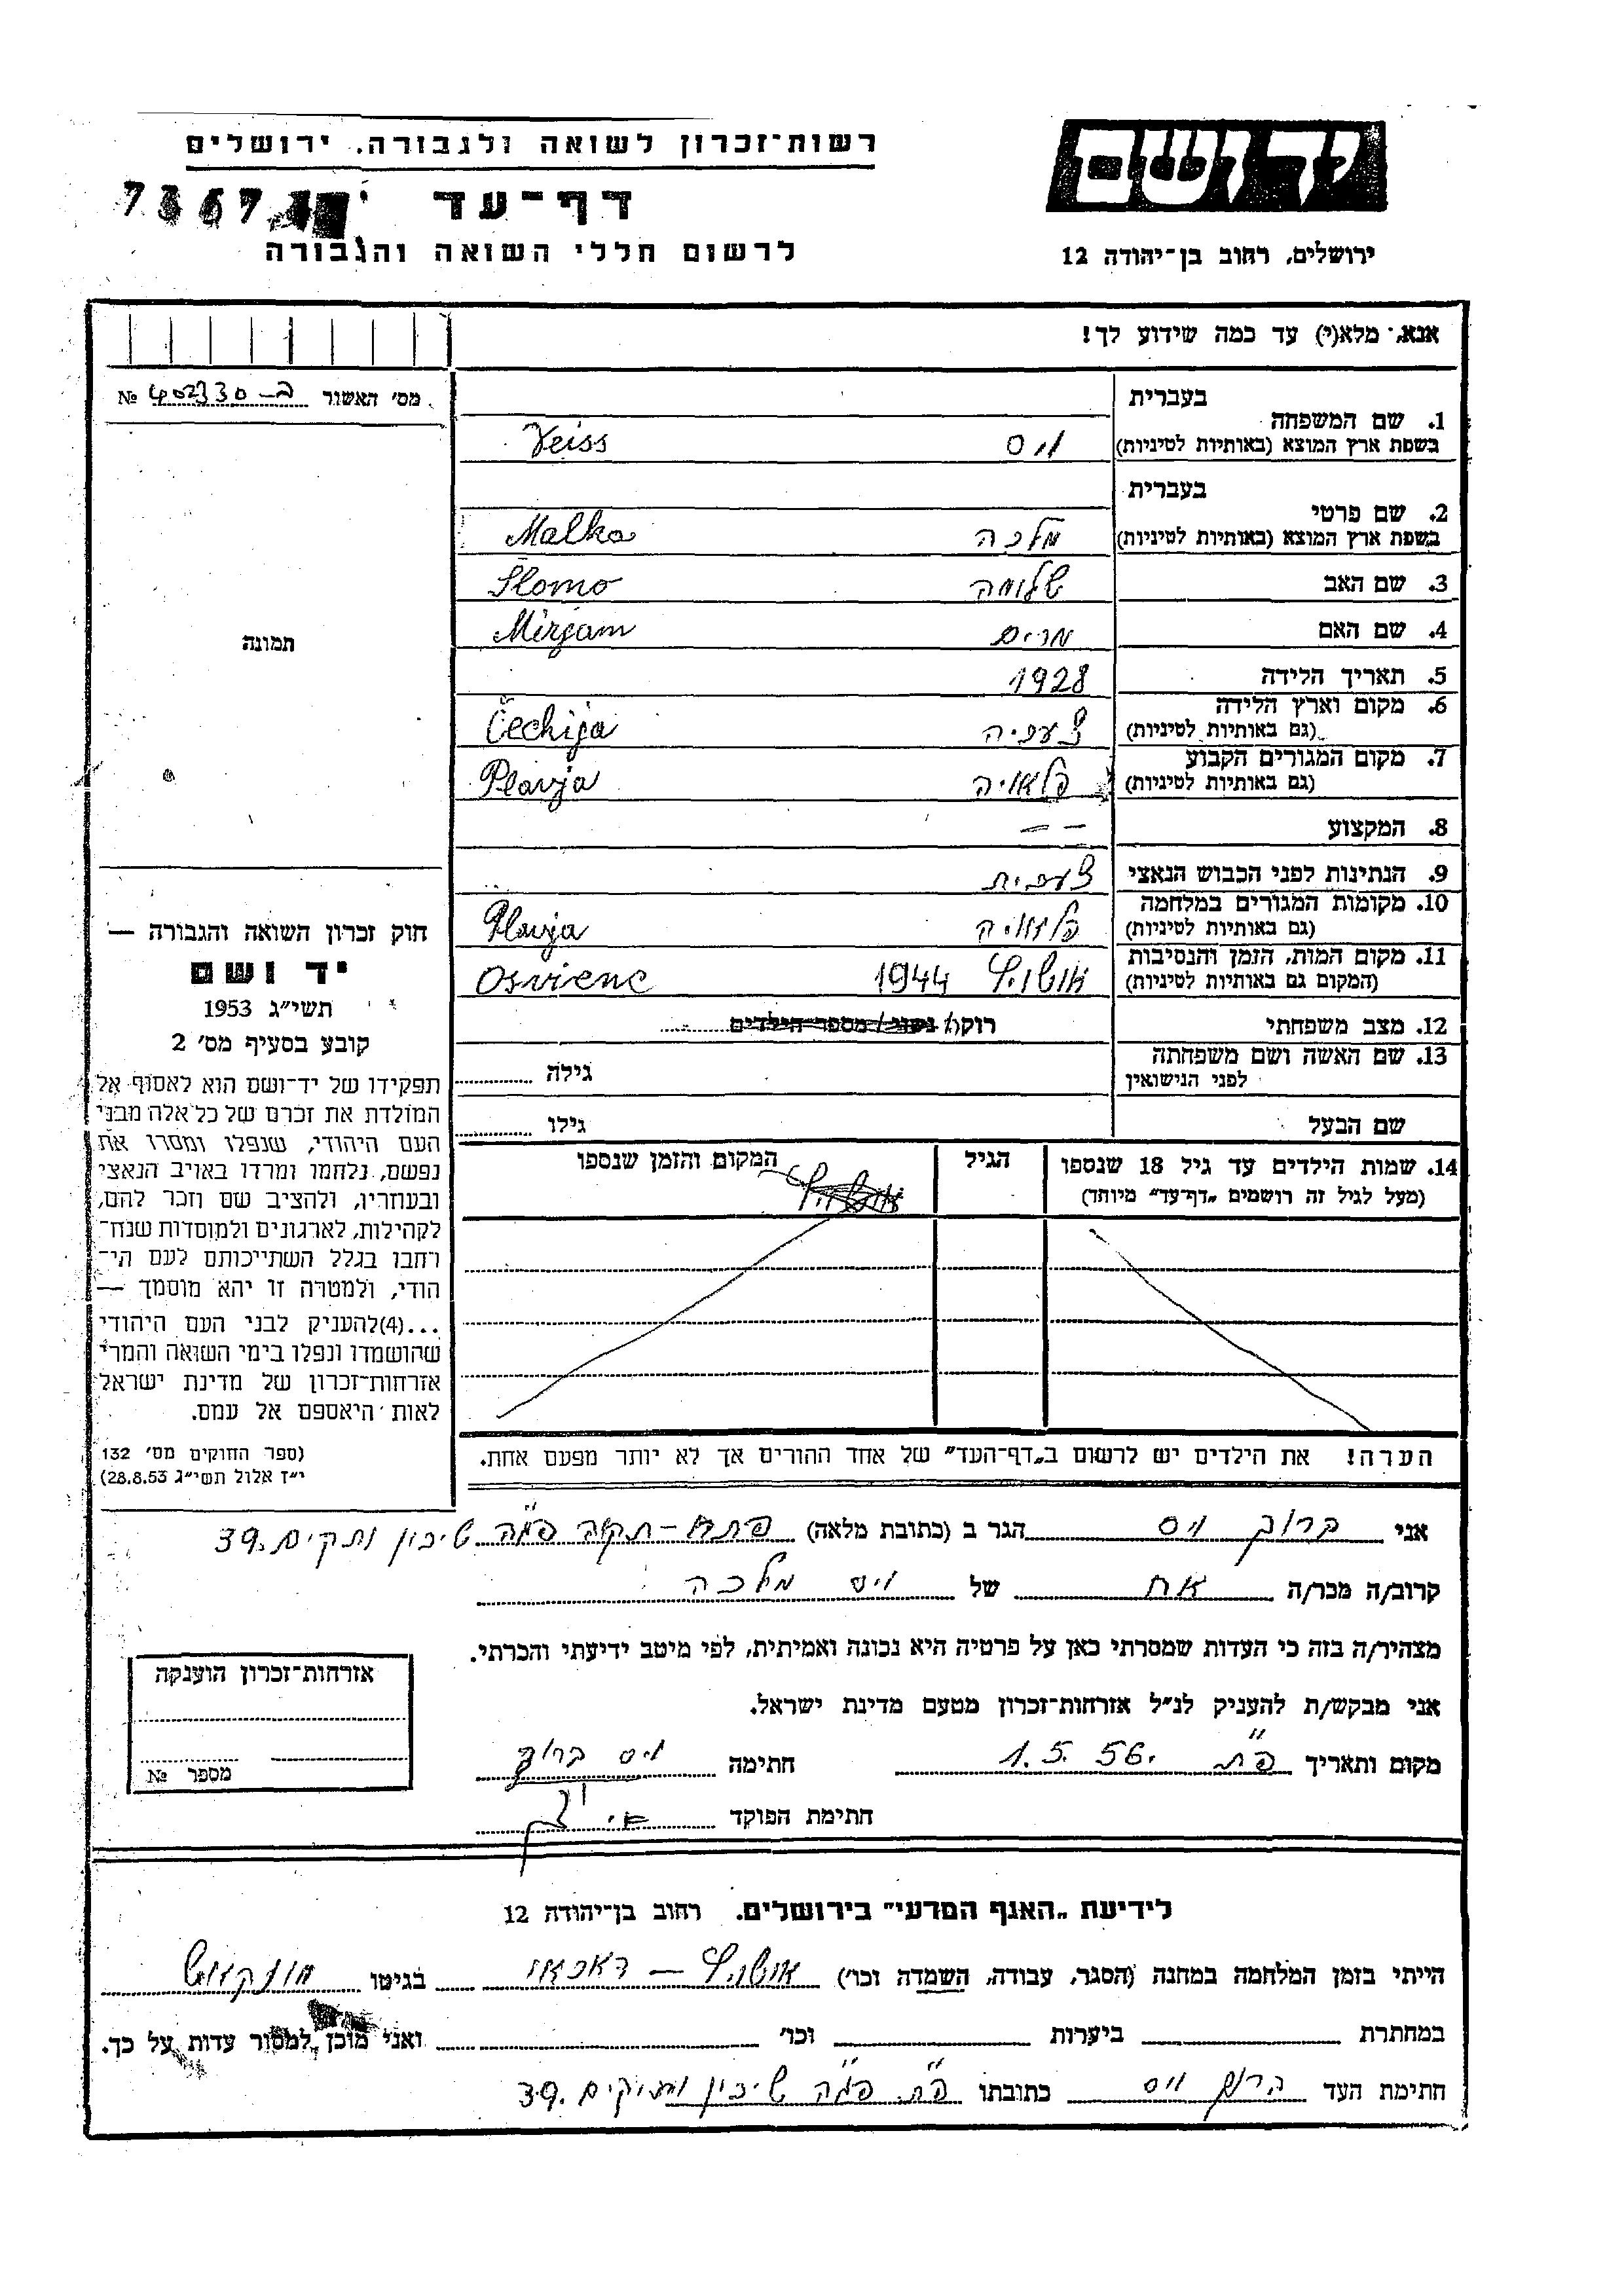 רשות־זכרון לשואה ולגבורה, ירושלים
יד ושם
דף־עד
לרשום חללי השואה והגבורה
ירושלים, רחוב בן־יהודה 12
אנא, מלא(י) עד כמה שידוע לך!
מס' האשור № 402330-ב
1. שם המשפחה
בעברית
בשפת ארץ המוצא (באותיות לטיניות)
ויס Veiss
2. שם פרטי
בעברית
בשפת ארץ המוצא (באותיות לטיניות)
מלכה Malka
3. שם האב שלומה Šlomo
4. שם האם מרים Mirjam
5. תאריך הלידה 1928
6. מקום וארץ הלידה
(גם באותיות לטיניות)
צ'כיה Čechija
7. מקום המגורים הקבוע
(גם באותיות לטיניות)
פלאויה Plavja
8. המקצוע — —
9. הנתינות לפני הכבוש הנאצי צ'כית
10. מקומות המגורים במלחמה
(גם באותיות לטיניות)
פלאויה Plavja
11. מקום המות, הזמן והנסיבות
(המקום גם באותיות לטיניות)
אושויץ 1944 Osvienc
12. מצב משפחתי רוק/ נשוי/ מספר הילדים
13. שם האשה ושם משפחתה
לפני הנישואין
גילה
שם הבעל גילו
14. שמות הילדים עד גיל 18 שנספו
(מעל לגיל זה רושמים „דף־עד" מיוחד)
הגיל
המקום והזמן שנספו
הערה! את הילדים יש לרשום ב„דף־העד" של אחד ההורים אך לא יותר מפעם אחת.
תמונה
חוק זכרון השואה והגבורה —
יד ושם
תשי"ג 1953
קובע בסעיף מס' 2
תפקידו של יד־ושם הוא לאסוף אל
המולדת את זכרם של כל אלה מבני
העם היהודי, שנפלו ומסרו את
נפשם, נלחמו ומרדו באויב הנאצי
ובעוזריו, ולהציב שם וזכר להם,
לקהילות, לארגונים ולמוסדות שנח־
רחבו בגלל השתייכותם לעם הי־
הודי, ולמטרה זו יהא מוסמך —
...(4)להעניק לבני העם היהודי
שהושמדו ונפלו בימי השואה והמרי
אזרחות־זכרון של מדינת ישראל
לאות היאספם אל עמם.
(ספר החוקים מס' 132
י"ז אלול תשי"ג 28.8.53)
אני ברוך ויס הגר ב (כתובת מלאה) פתח-תקוה פג"ה שיכון ותקים 39.
קרוב/ה מכר/ה אח של ויס מלכה
מצהיר/ה בזה כי העדות שמסרתי כאן על פרטיה היא נכונה ואמיתית, לפי מיטב ידיעתי והכרתי.
אני מבקש/ת להעניק לנ"ל אזרחות־זכרון מטעם מדינת ישראל.
מקום ותאריך פ"ת 1.5.56. חתימה ויס ברוך
חתימת הפוקד
אזרחות־זכרון הוענקה
מספר №
לידיעת „האגף המדעי" בירושלים, רחוב בן־יהודה 12
הייתי בזמן המלחמה במחנה (הסגר, עבודה, השמדה וכו') אושויץ — דאכאו בגיטו מונקאטש
במחתרת ביערות וכו' ואני מוכן למסור עדות על כך.
חתימת העד ברוך ויס כתובתו פ"ת פג"ה שיכון ותיקים 39.